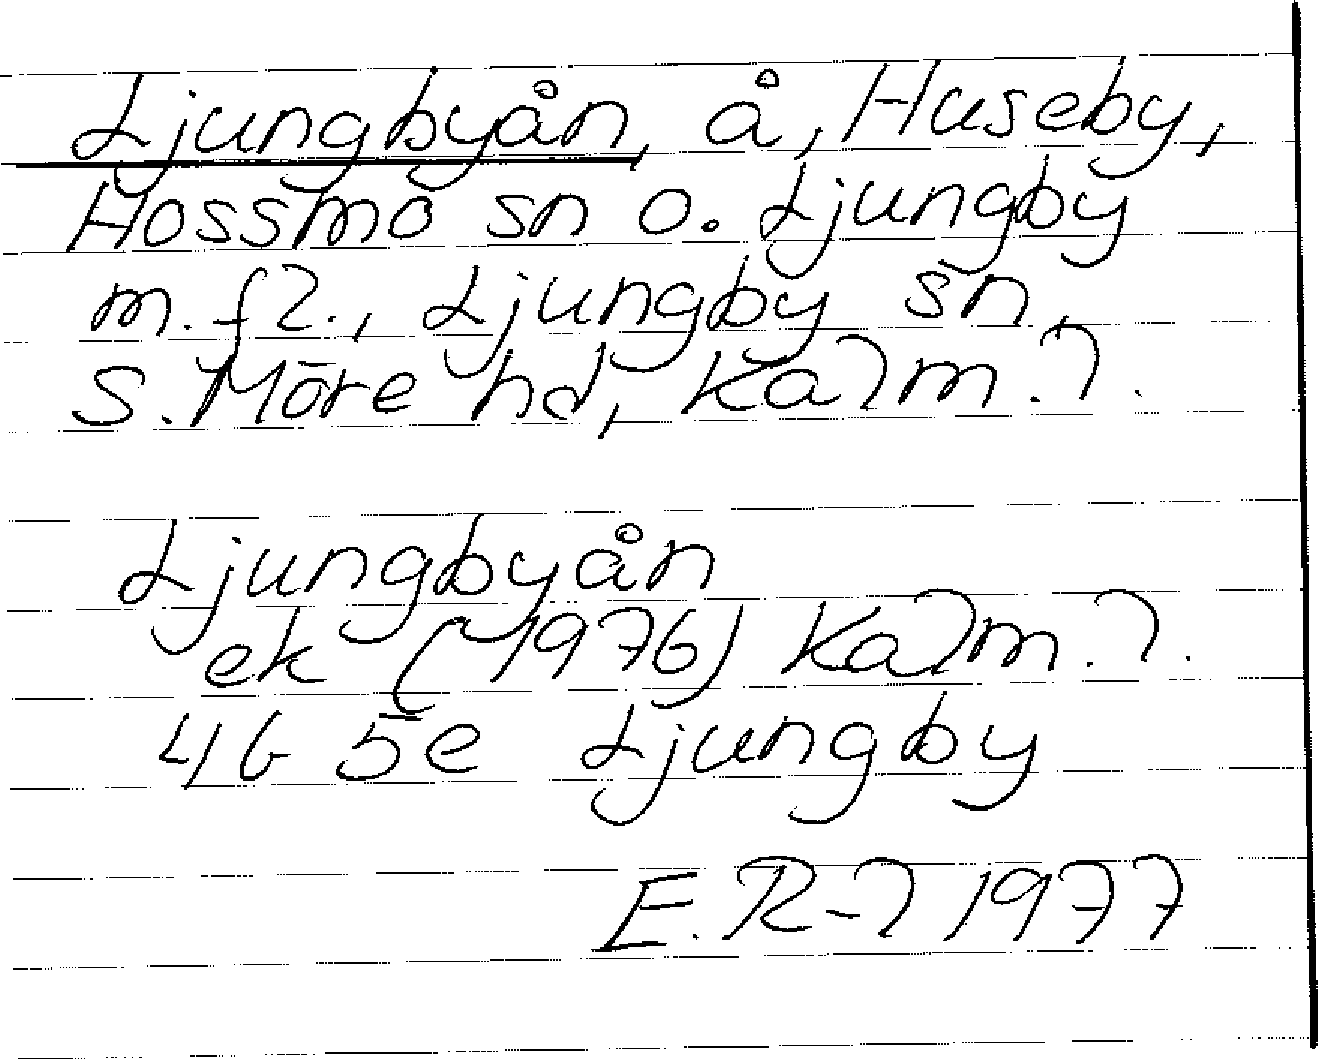 Ljungbyån, å, Huseby,
Hossmo sn o. Ljungby
m. fl., Ljungby sn,
S. Möre hd, Kalm. l.
Ljungbyån
ek (~1976) Kalm. l.
4G 5e Ljungby
E. R-l 1977